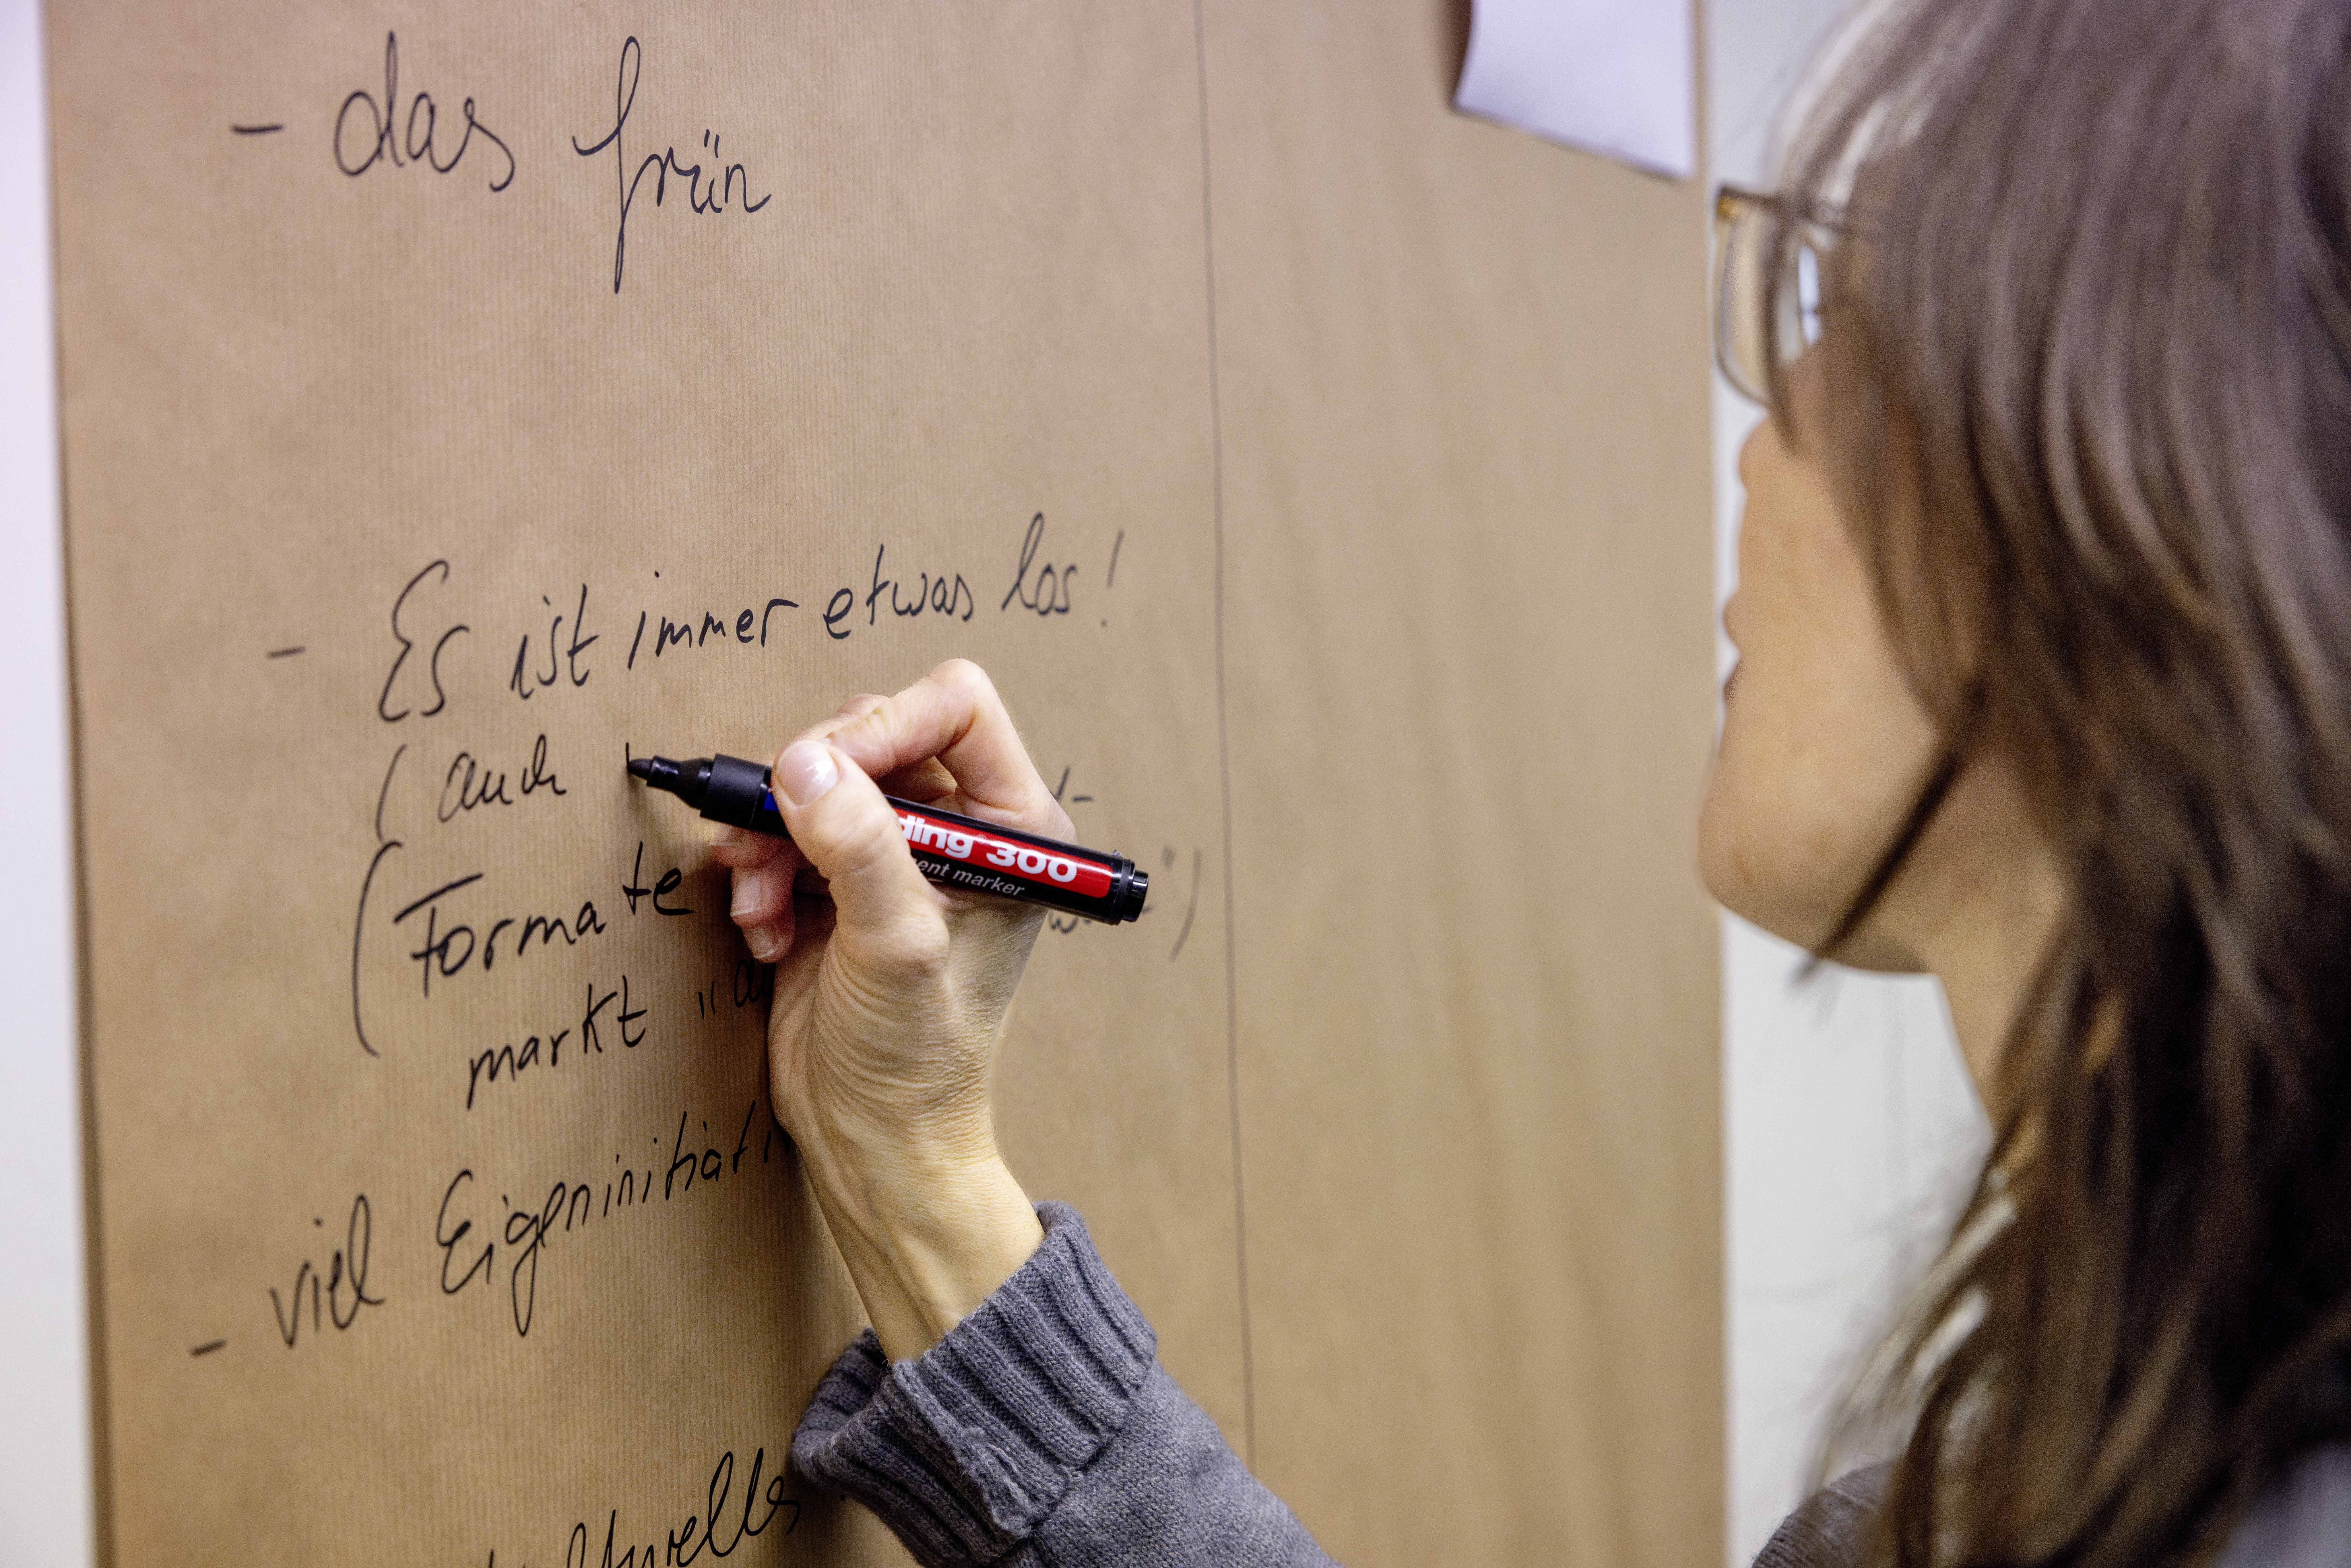 - das frün
- Es ist immer etwas los!
( auch
(Formate
markt "
- viel Eigeninitiati
ding 300
ent marker